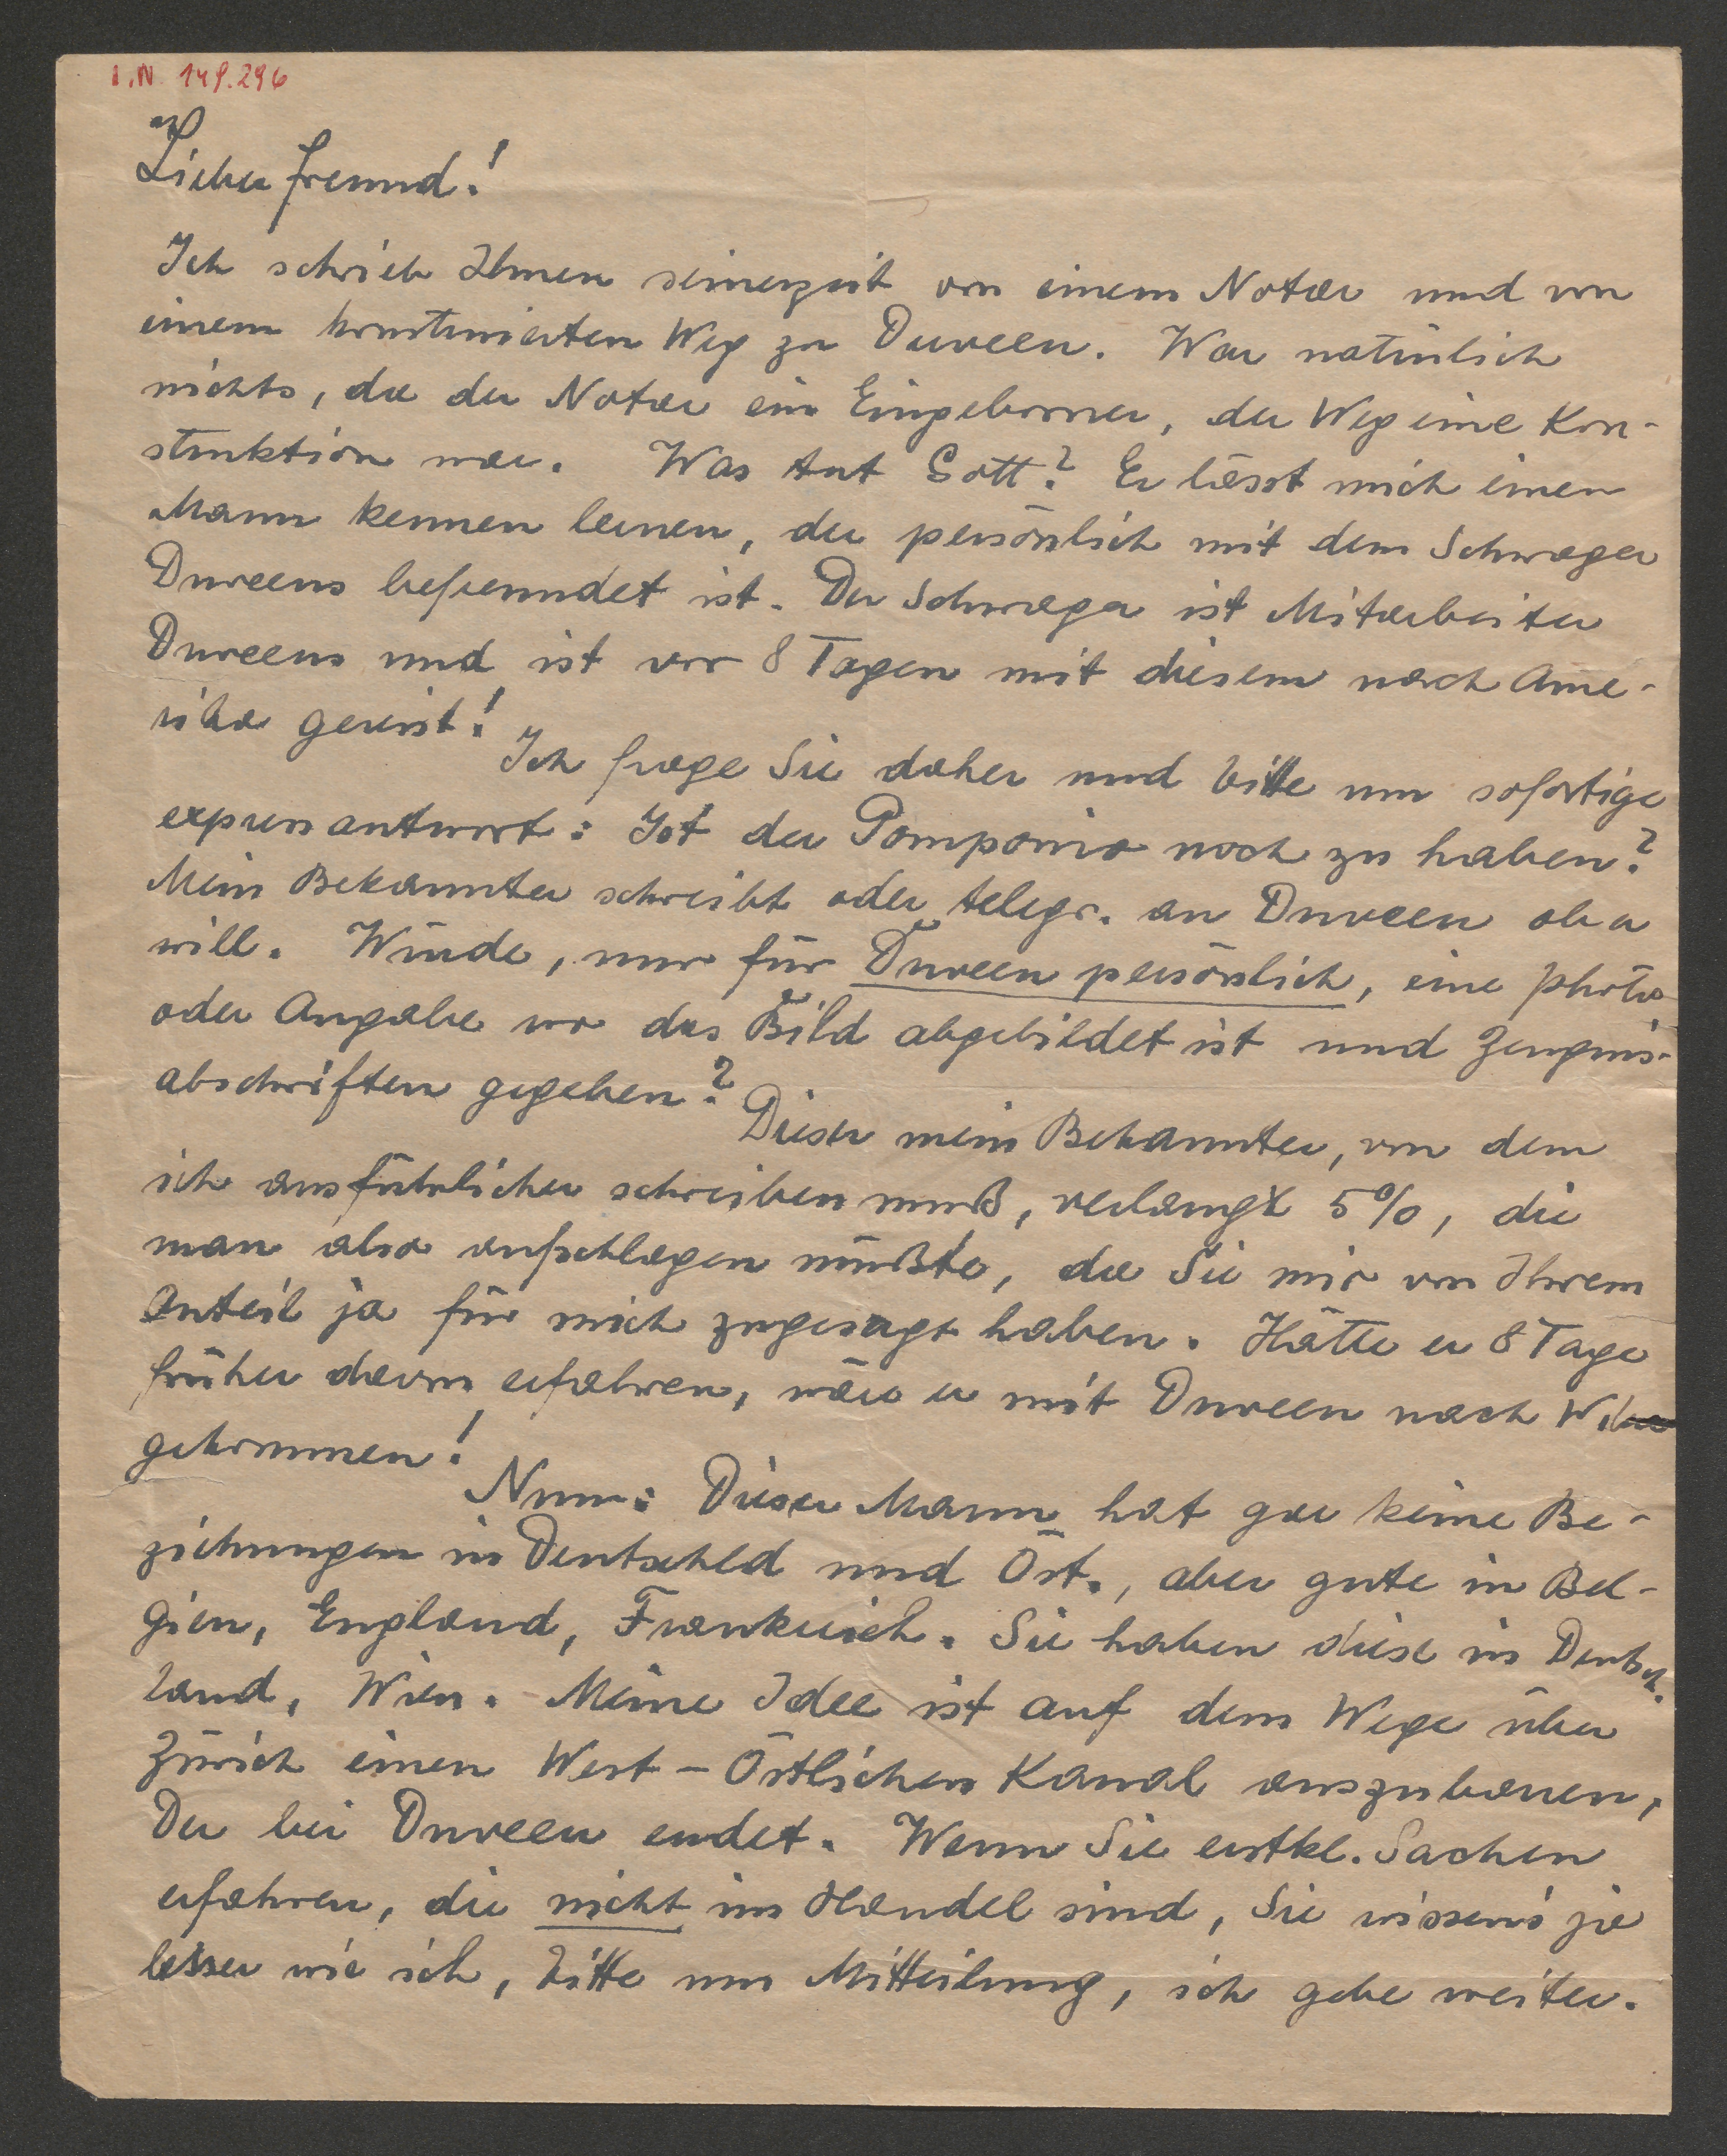 I.N. 149.296
Lieber Freund!
Ich schrieb Ihnen seinerzeit von einem Notar und von
einem konstruierten Weg zu Duveen. War natürlich
nichts, da der Notar ein Eingeborner, der Weg eine Kon-
struktion war. Was tut Gott? Er lässt mich einen
Mann kennen lernen, der persönlich mit dem Schwager
Duveens befreundet ist. Der Schwager ist Mitarbeiter
Duveens und ist vor 8 Tagen mit diesem nach Ame-
rika gereist!
Ich frage Sie daher und bitte um sofortige
expressantwort: Ist der Pomponio noch zu haben?
Mein Bekannter schreibt oder telegr. an Duveen ob er
will. Würde, nur für Duveen persönlich, eine photo
oder Angabe wo das Bild abgebildet ist und Zeugnis-
abschriften gegeben?
Dieser mein Bekannter, von dem
ich ausführlicher schreiben muß, verlangt 5%, die
man also aufschlagen müßte, da Sie mir von Ihrem
Anteil ja für mich zugesagt haben. Hätte er 8 Tage
früher davon erfahren, wäre er mit Duveen nach W.
gekommen!
Nun: Dieser Mann hat gar keine Be-
ziehungen in Deutschld und Öst., aber gute in Bel-
gien, England, Frankreich. Sie haben diese in Deutsch-
land, Wien. Meine Idee ist auf dem Wege über
Zürich einen West-Östlichen Kanal auszubauen,
Der bei Duveen endet. Wenn Sie erstkl. Sachen
erfahren, die nicht im Handel sind, Sie wissen's ja
besser wie ich, bitte um Mitteilung, ich gebe weiter.